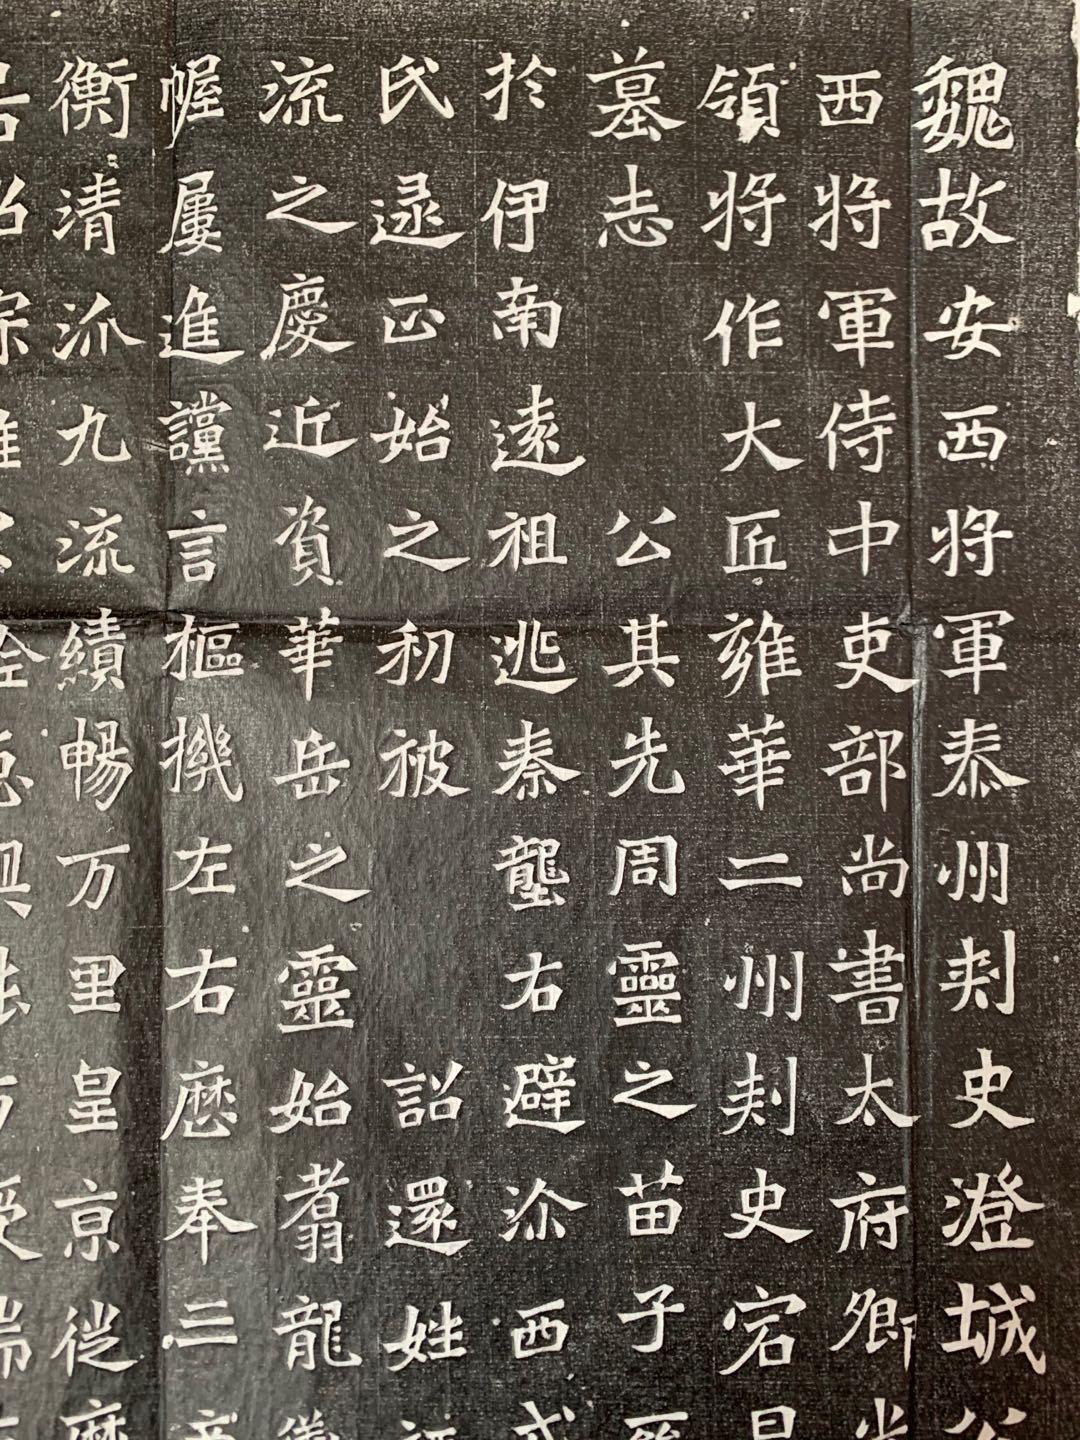 魏故安西將軍秦州刺史澄城
西將軍侍中吏部尚書太府卿
領將作大匠雍華二州刺史宕
墓志 公其先周靈之苗子
於伊南遠祖逃秦壟右避沵西
氏逯正始之初被 詔還姓
流之慶近資華岳之靈始翥龍
幄屢進讜言樞機左右歷奉二
衡清派九流績暢万里皇京從